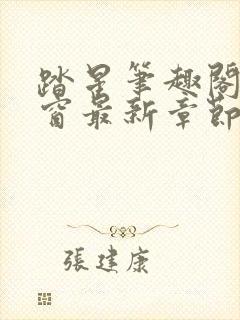 踏星笔趣阁
窗最新章節
張建康